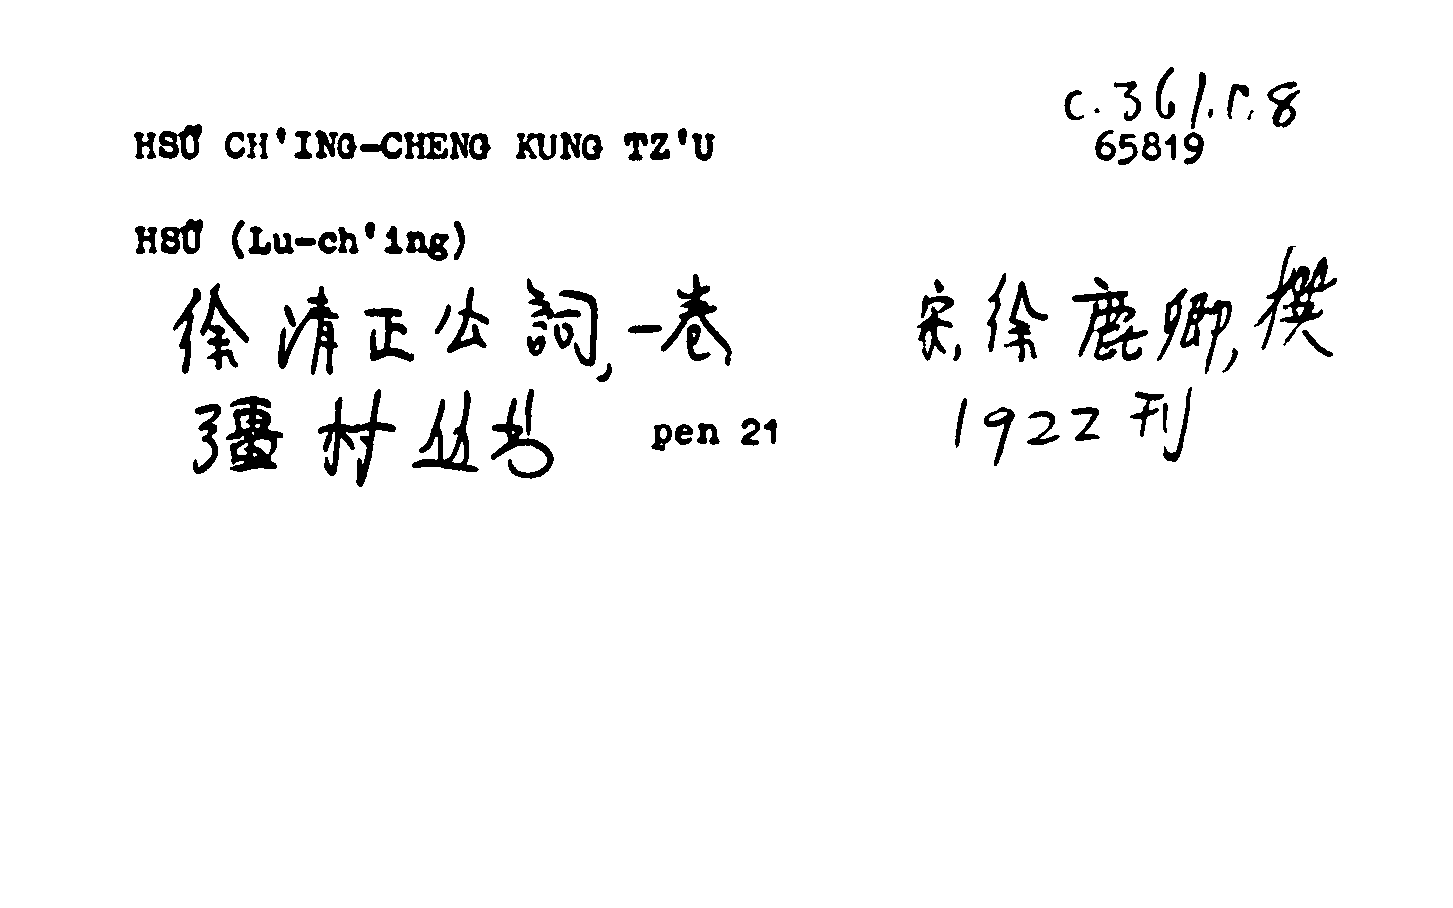 c.361.r.8
HSÜ CH'ING-CHENG KUNG TZ'U
65819
HSÜ (Lu-ch'ing)
徐清正公詞,一卷 宋,徐鹿卿,撰
彊村丛书 pen 21 1922刊